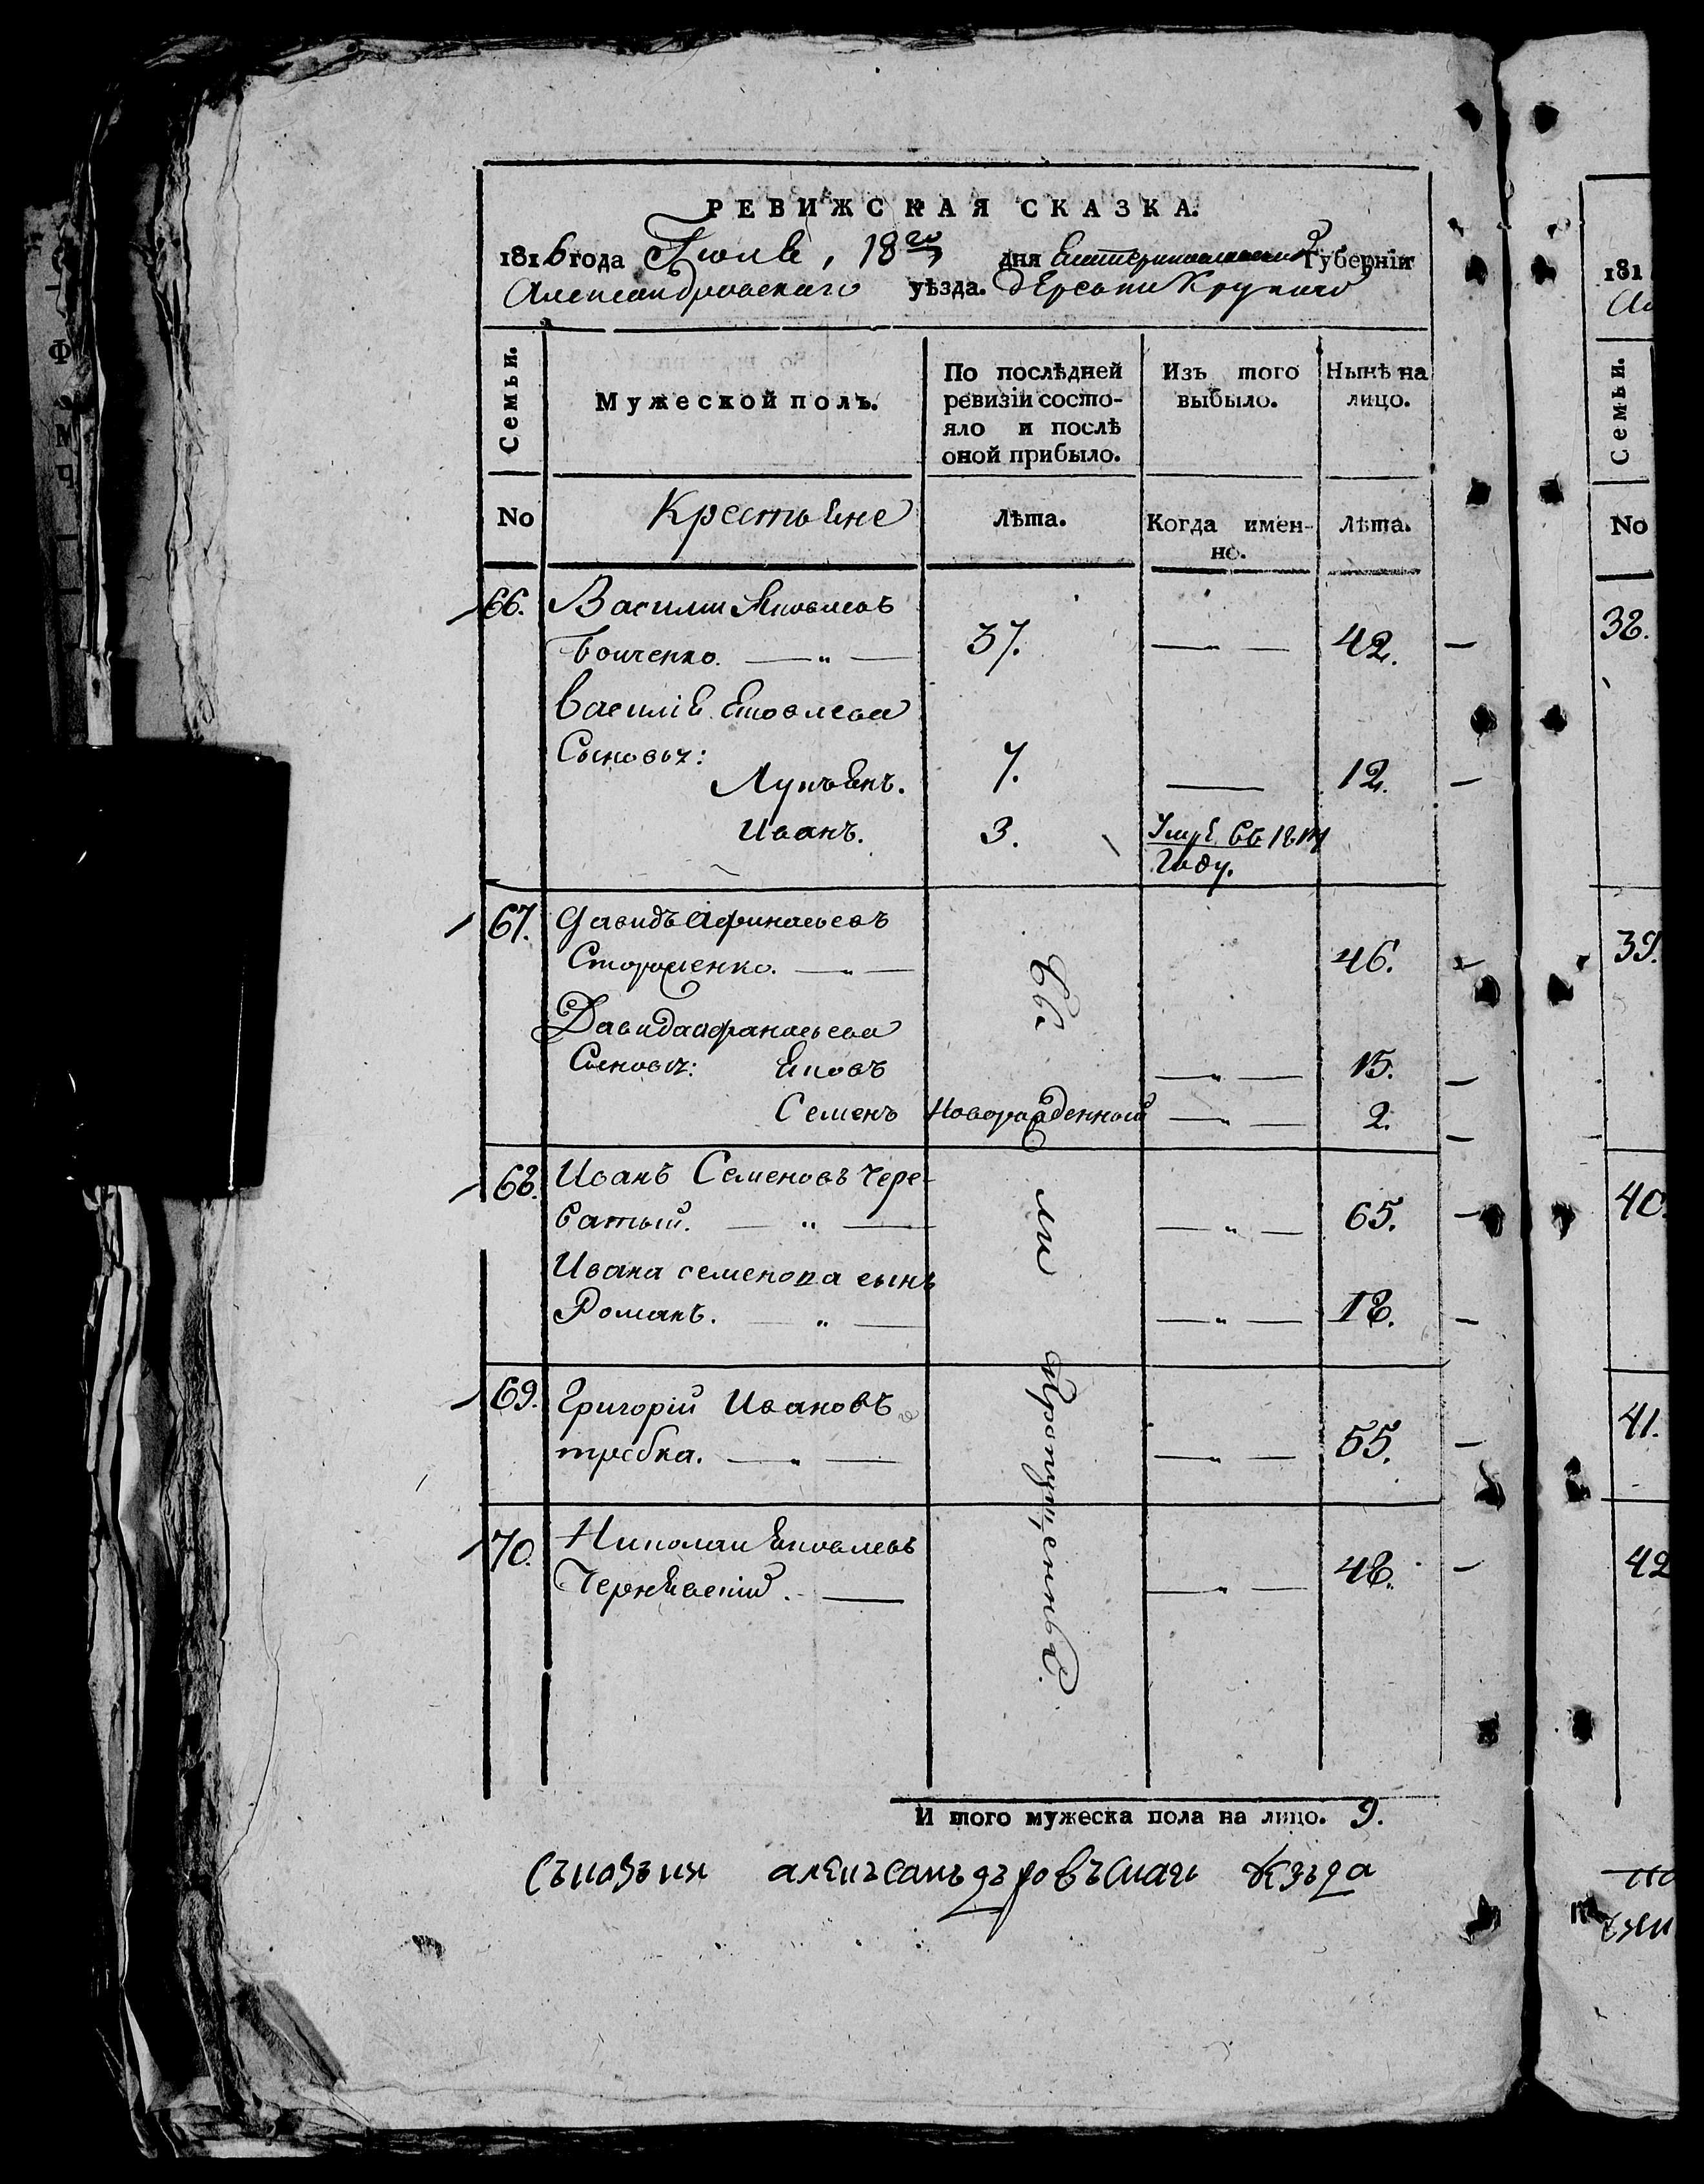 РЕВИЖСКАЯ СКАЗКА.
1816 года Іюля, 18го дня Екатеринославской Губерніи
Александровскаго уѣзда.
Семьи.
Мужеской полъ.
По послѣдней ревизіи состо-
яло и послѣ оной прибыло.
Изъ того выбыло.
Нынѣ на лицо.
No
Крестьяне
Лѣта.
Когда имен-
но.
Лѣта.
66. Василии Яковлевъ
Боиченко. — „ — 37. — „ — 42.
Василія Яковлева
Сыновья:
Лукъянъ. 7. — 12.
Иванъ. 3. Умре въ 1814
Году.
67. Давидъ Афанасьевъ
Стороженко. — „ — 46.
Давида Афанасьева
Сыновья: Яковъ — „ — 15.
Семенъ Новорожденный — „ — 2.
68. Иванъ Семеновъ Чере-
ватый. — „ — — „ — 65.
Ивана семенова сынъ
Романъ. — „ — — „ — 18.
69. Григорій Ивановъ
требка. — „ — — „ — 55.
70. Николаи Яковлевъ
Чернявский. — — „ — 48.
Въ
ли
Пропущенные.
И того мужеска пола на лицо. 9.
алекъсанъдъровъскаго уезъда
181
Семьи.
No
38.
39.
40.
41.
42